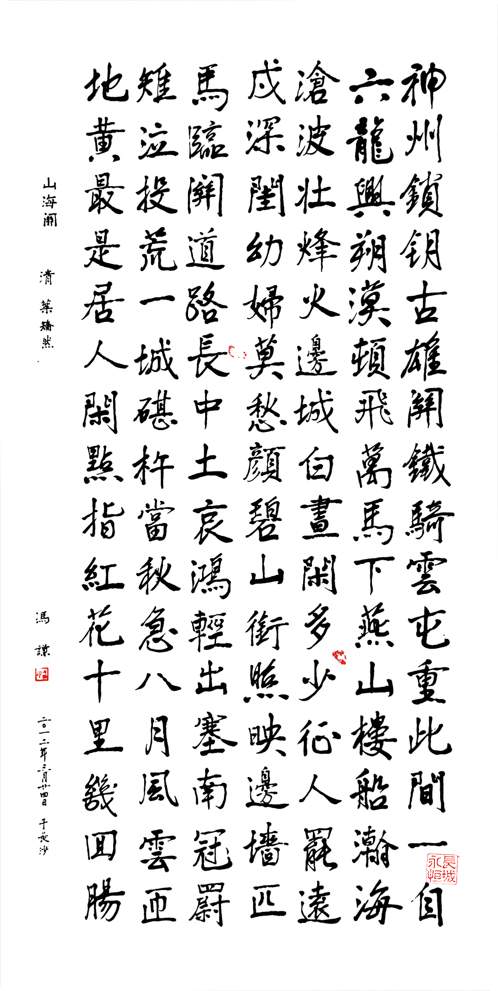 神州鎖钥古雄關鐵騎雲屯重此間一自
六龍興朔漠頓飛萬馬下燕山樓船瀚海
滄波壯烽火邊城白晝閑多少征人罷遠
戍深閨幼婦莫愁顏碧山銜照映邊墻匹
馬臨關道路長中土哀鴻輕出塞南冠罻
雉泣投荒一城碪杵當秋急八月風雲匝
地黃最是居人閑點指紅花十里幾回腸
山海關 清 葉矯然
馮 二〇一二年三月廿四日 于長沙
長城永恒